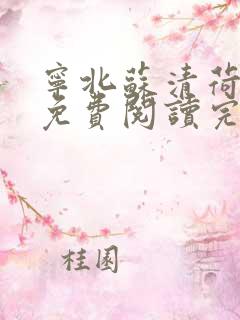 寧北蘇清荷
免費閱讀完
桂園